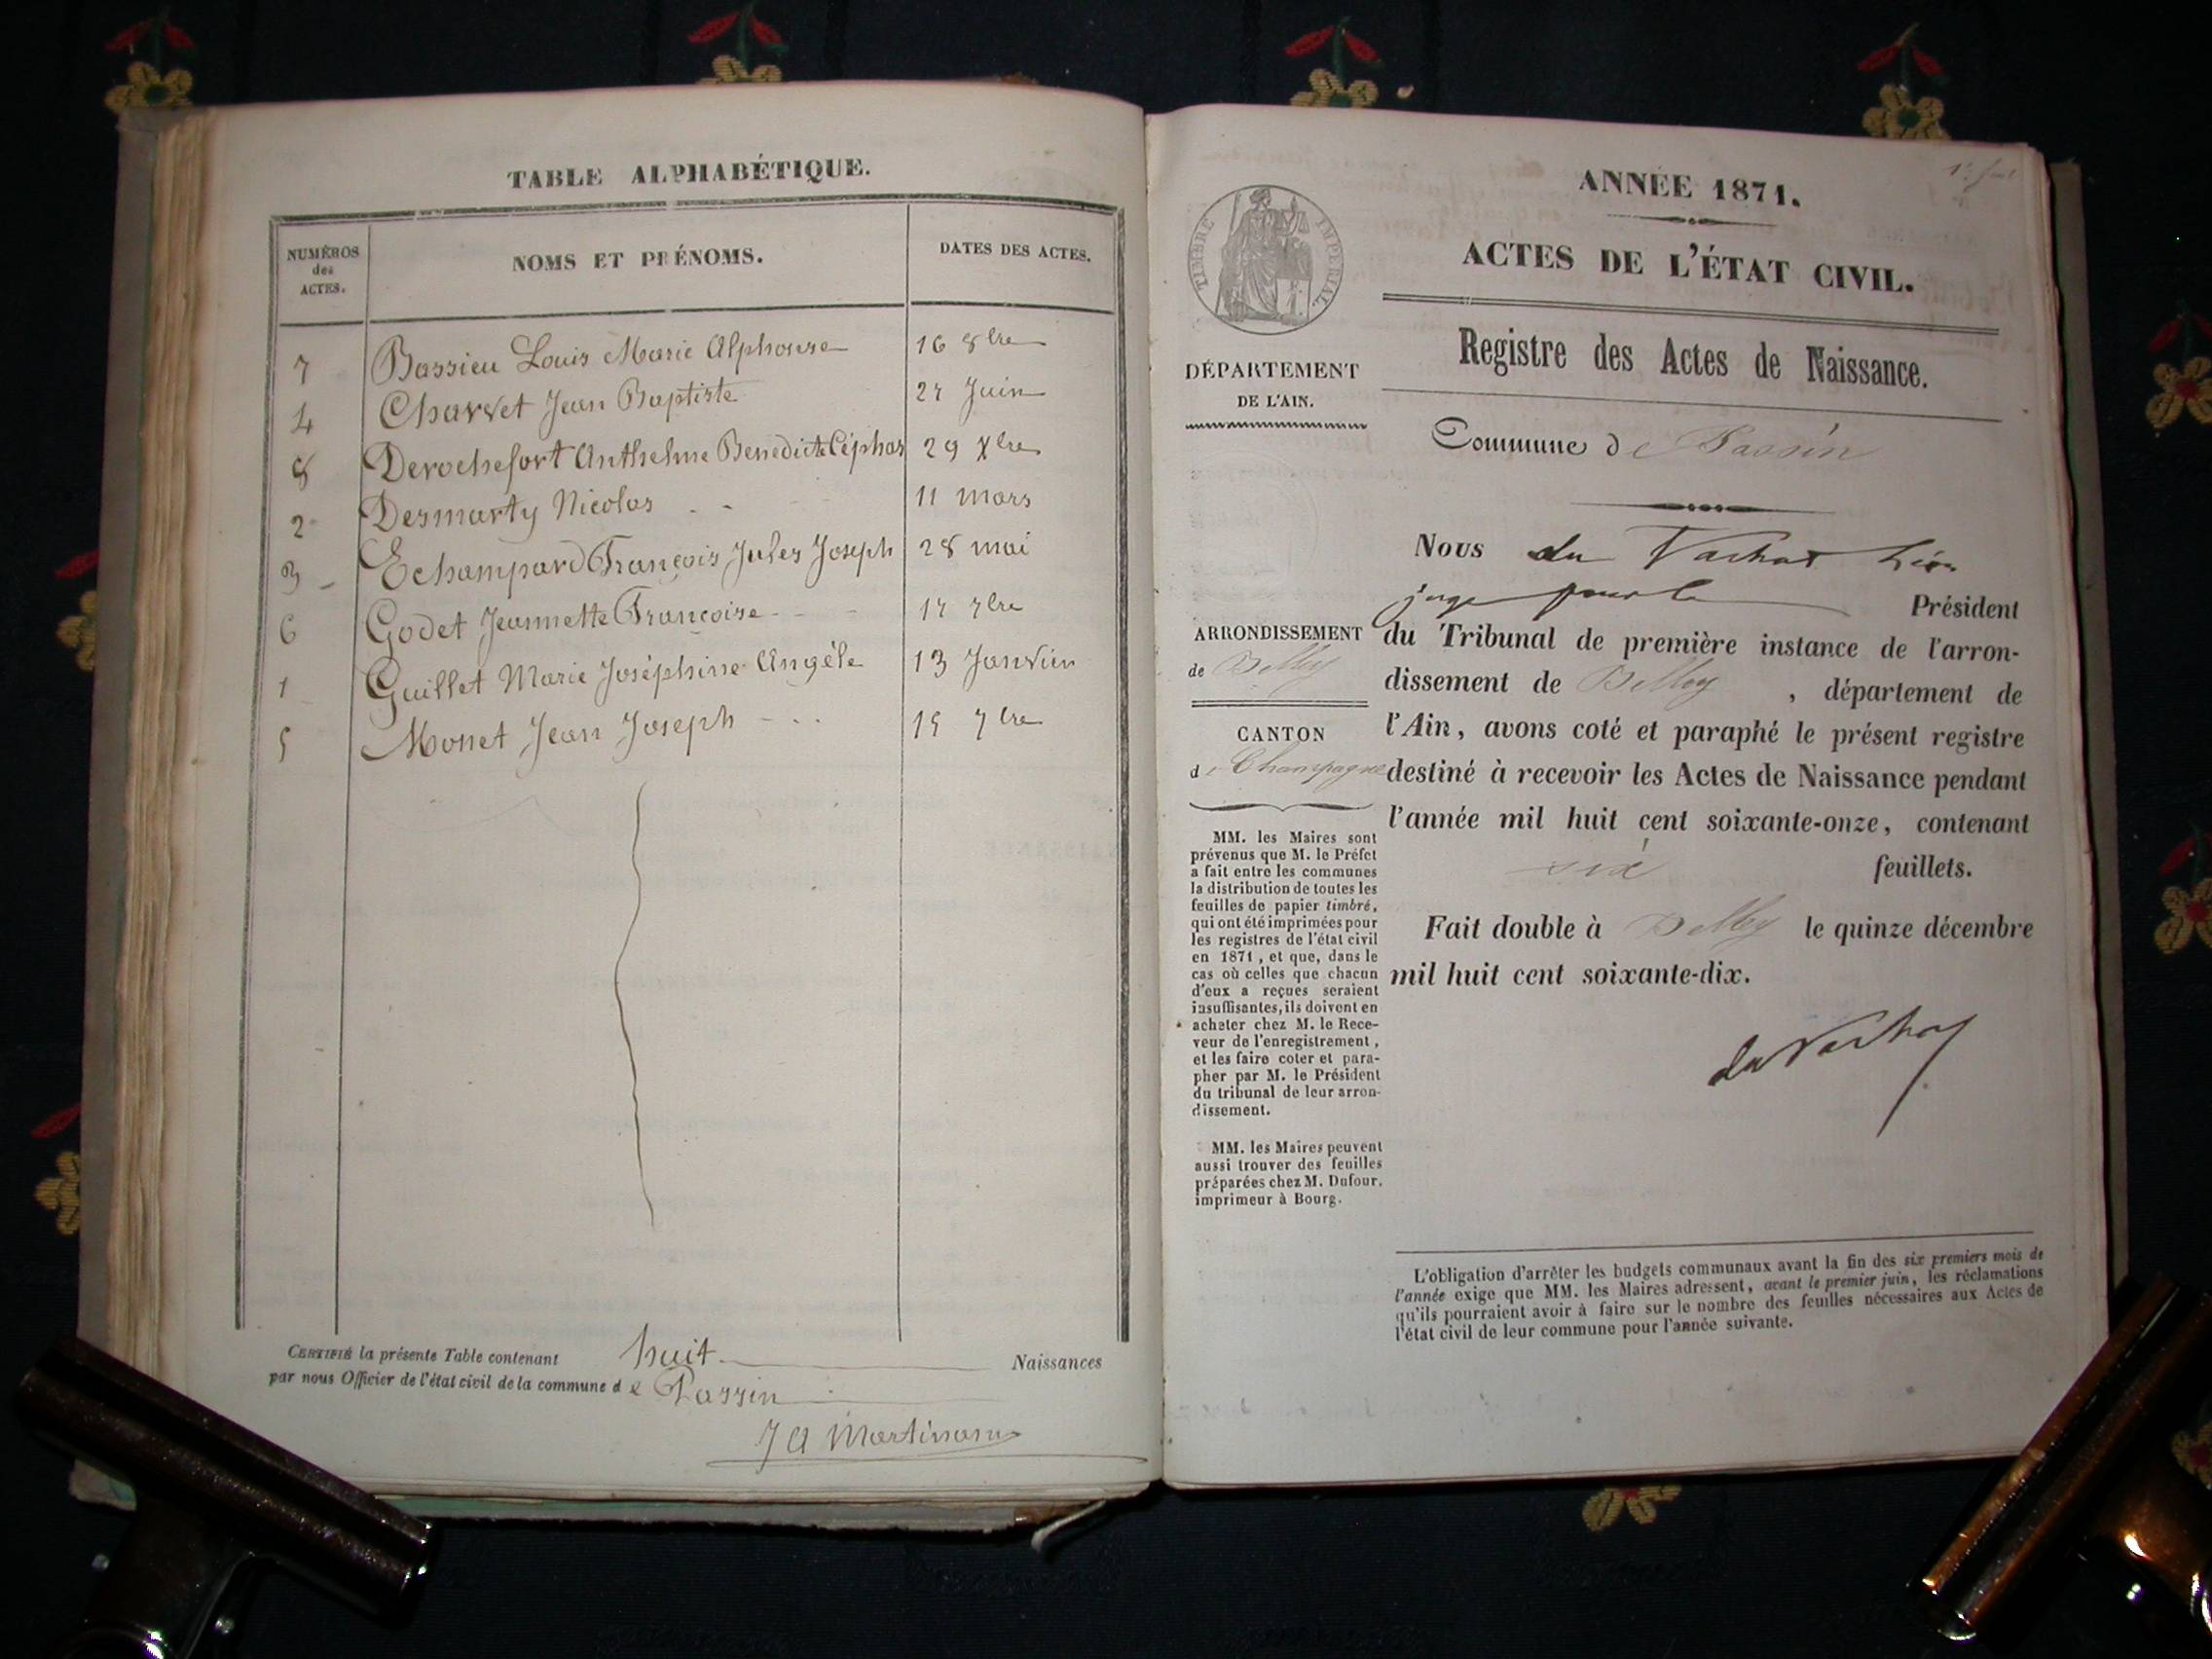 TABLE ALPHABÉTIQUE.
NUMÉROS des ACTES. NOMS ET PRÉNOMS. DATES DES ACTES.
7 Bassieu Louis Marie Alphonse 16 8bre
4 Charvet Jean Baptiste 27 Juin
8 Derochefort Anthelme Benedicte Céphas 29 Xbre
2 Desmarty Nicolas 11 mars
3 Echampard François Jules Joseph 28 mai
6 Godet Jeannette Françoise 17 7bre
1 Guillet Marie Joséphine Angèle 13 Janvier
5 Monet Jean Joseph 15 7bre
CERTIFIÉ la présente Table contenant huit Naissances
par nous Officier de l'état civil de la commune de Passin
J A Martinand
TIMBRE IMPÉRIAL.
DÉPARTEMENT
DE L'AIN.
ARRONDISSEMENT
de Belley
CANTON
de Champagne
MM. les Maires sont
prévenus que M. le Préfet
a fait entre les communes
la distribution de toutes les
feuilles de papier timbré,
qui ont été imprimées pour
les registres de l'état civil
en 1871, et que, dans le
cas où celles que chacun
d'eux a reçues seraient
insuffisantes, ils doivent en
acheter chez M. le Rece-
veur de l'enregistrement,
et les faire coter et para-
pher par M. le Président
du tribunal de leur arron-
dissement.
MM. les Maires peuvent
aussi trouver des feuilles
préparées chez M. Dufour,
imprimeur à Bourg.
ANNÉE 1871.
ACTES DE L'ÉTAT CIVIL.
Registre des Actes de Naissance.
Commune de Passin
Nous du Vachat Léon
juge pour le Président
du Tribunal de première instance de l'arron-
dissement de Belley, département de
l'Ain, avons coté et paraphé le présent registre
destiné à recevoir les Actes de Naissance pendant
l'année mil huit cent soixante-onze, contenant
six feuillets.
Fait double à Belley le quinze décembre
mil huit cent soixante-dix.
du Vachat
L'obligation d'arrêter les budgets communaux avant la fin des six premiers mois de
l'année exige que MM. les Maires adressent, avant le premier juin, les réclamations
qu'ils pourraient avoir à faire sur le nombre des feuilles nécessaires aux Actes de
l'état civil de leur commune pour l'année suivante.